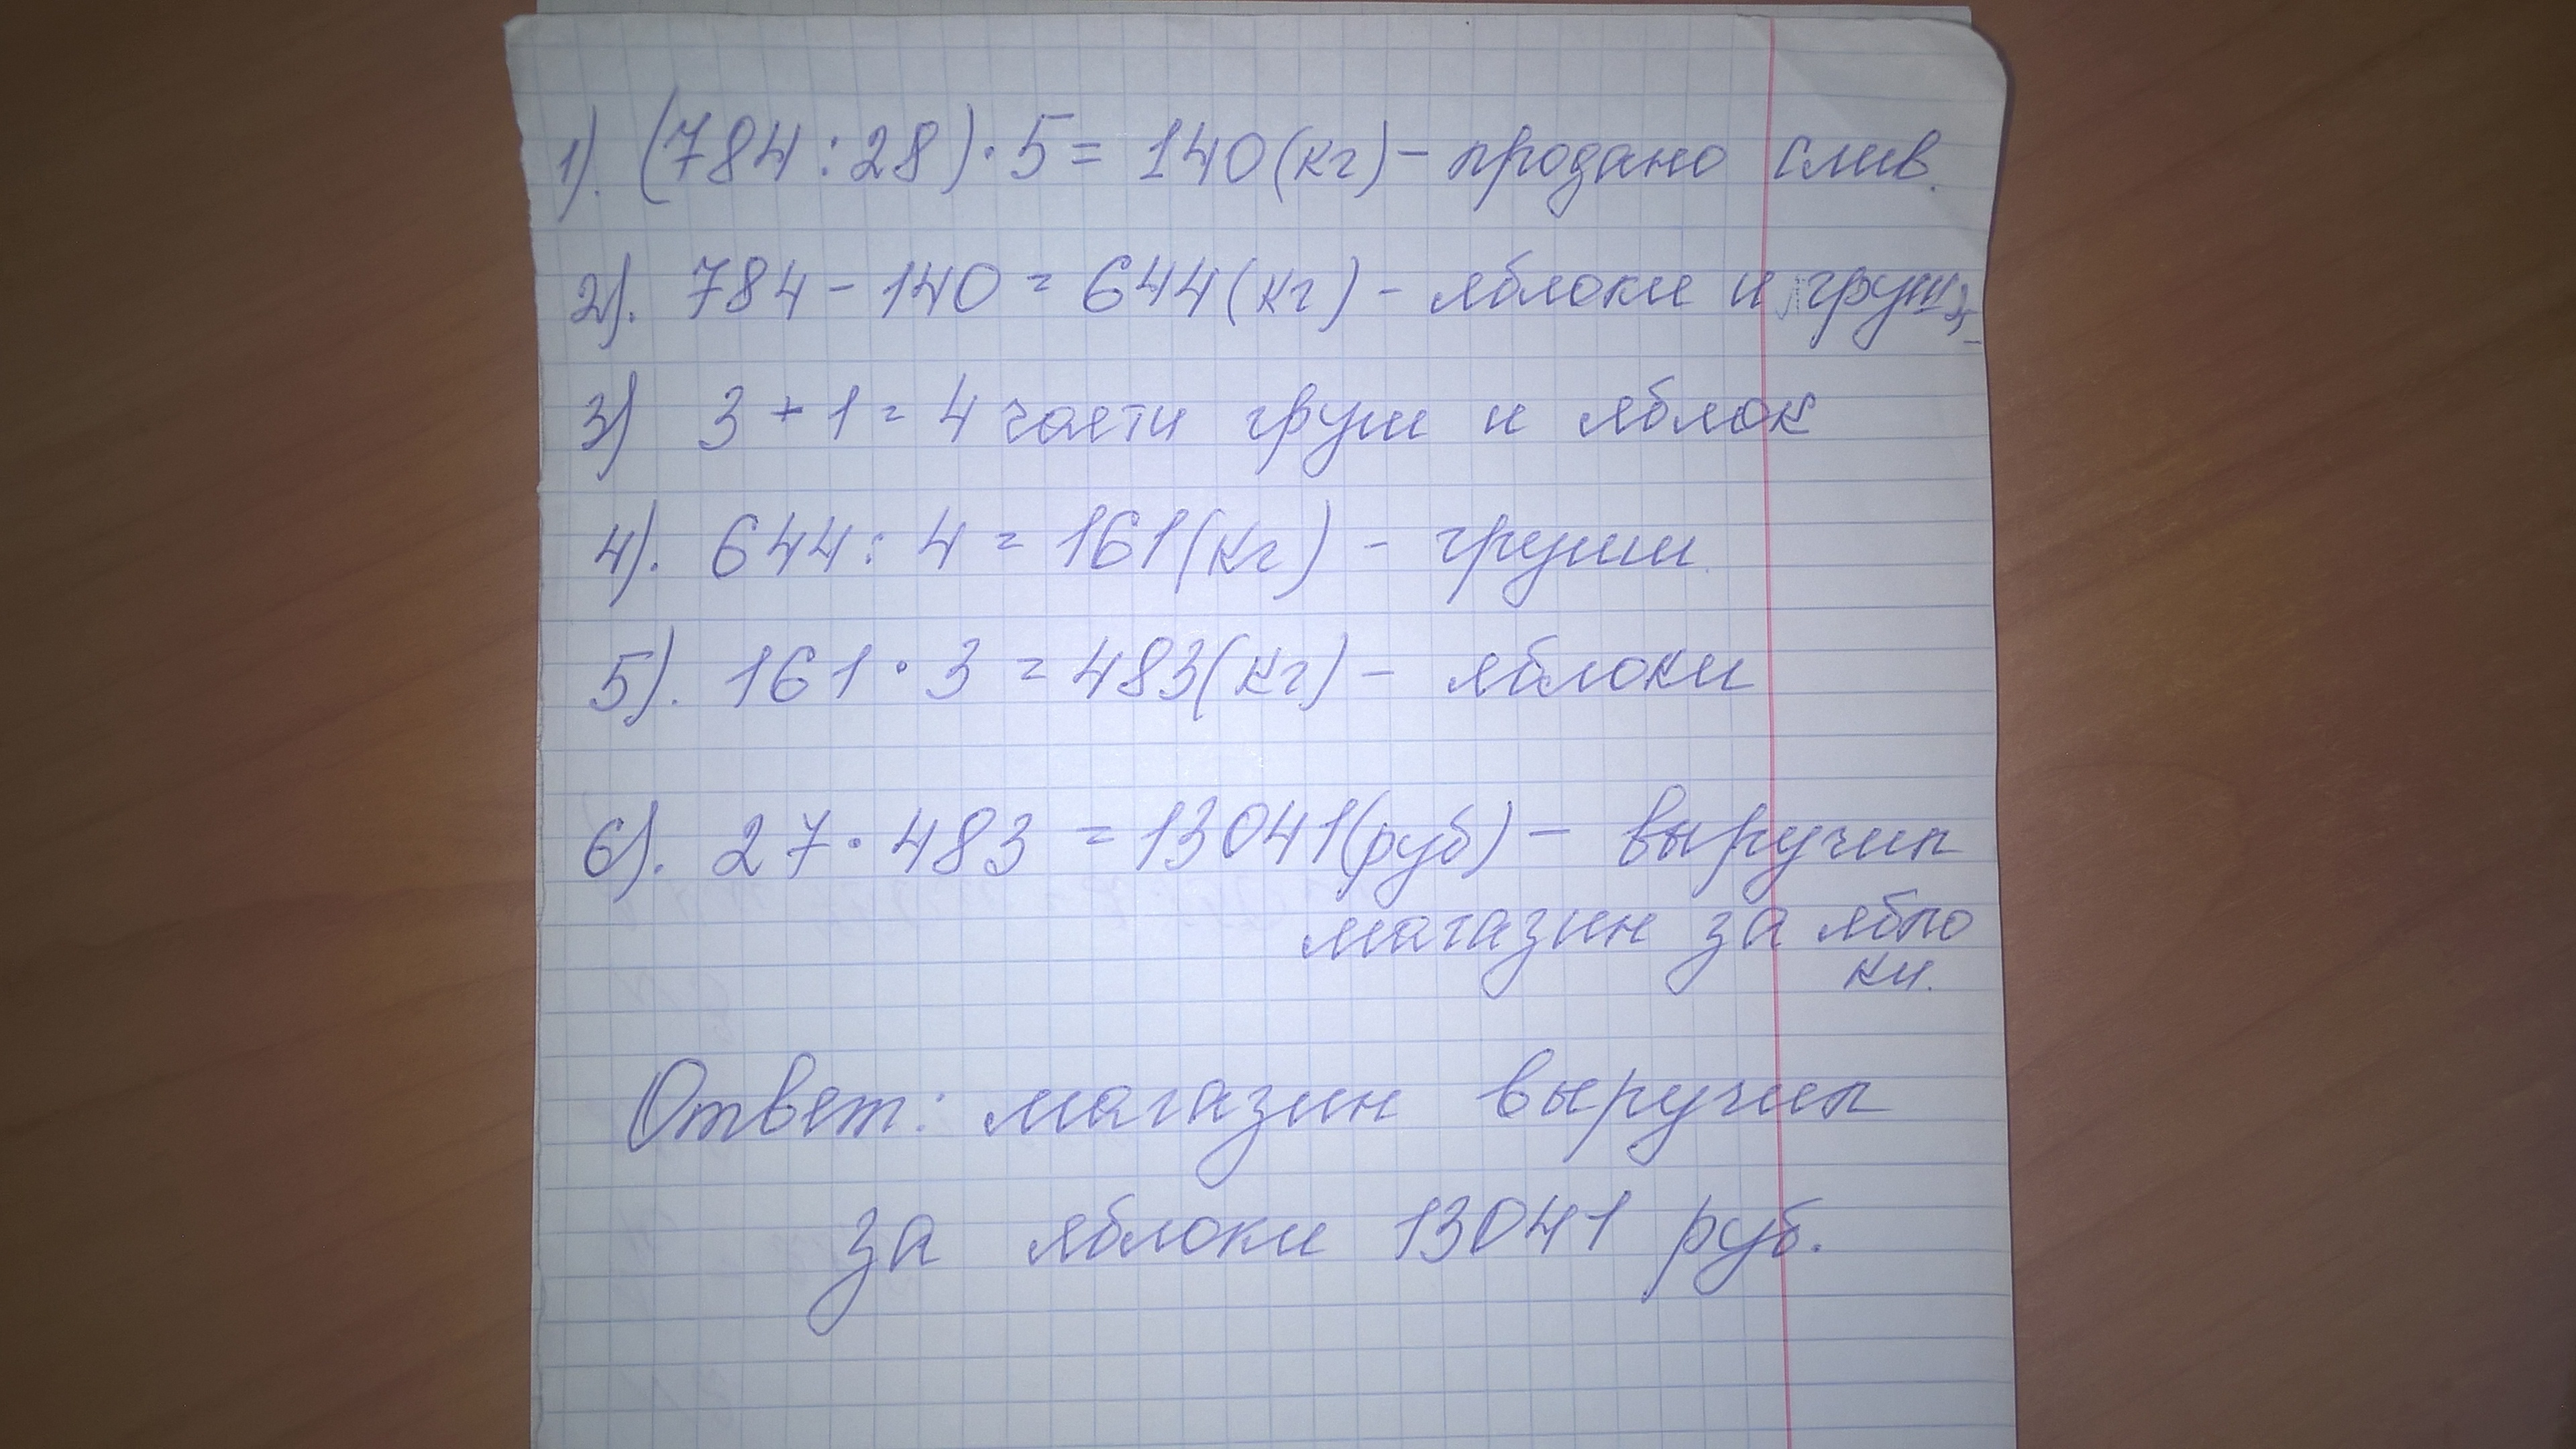 1). (784 : 28) · 5 = 140 (кг) – продано слив.
2). 784 – 140 = 644 (кг) – яблоки и груши
3) 3 + 1 = 4 части груш и яблок
4). 644 : 4 = 161 (кг) – груши.
5). 161 · 3 = 483 (кг) – яблоки
6). 27 · 483 = 13041 (руб) – выручил
магазин за ябло
ки.
Ответ: магазин выручил
за яблоки 13041 руб.